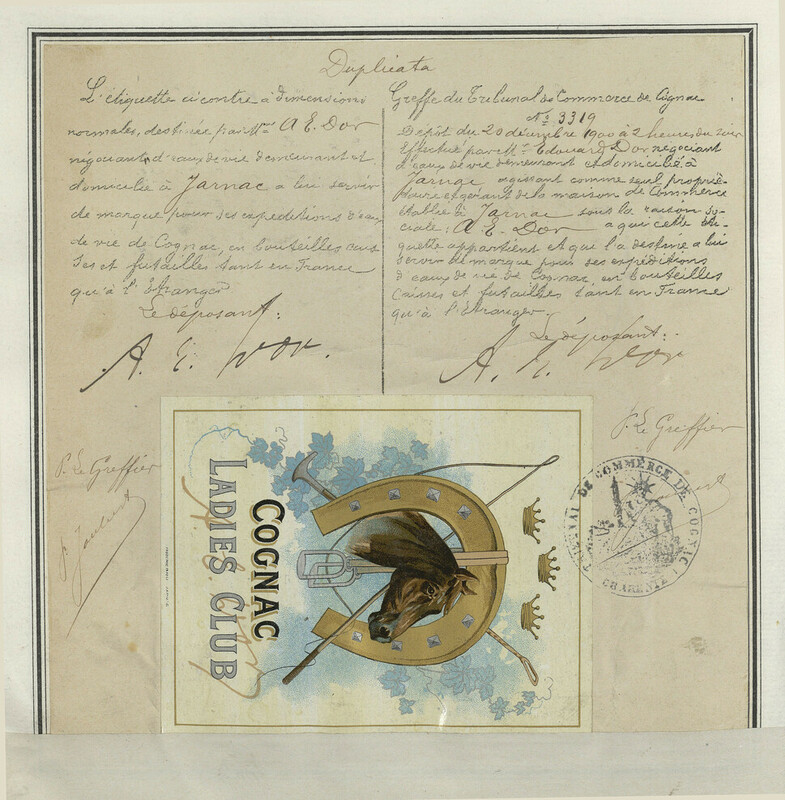 Duplicata
L'étiquette ci contre à dimensions
normales, destinée par Mr A E. Dor
négociant d'eaux de vie demeurant et
domicilié à Jarnac a lui servir
de marque pour ses expeditions d'eaux
de vie de Cognac, en bouteilles cais
ses et futailles tant en France
qu'à l'étranger
Le déposant:
A. E. Dor.
P. Le Greffier
P. Joubert
Greffe du Tribunal de Commerce de Cognac
No 3319
Dépot du 20 décembre 1900 à 2 heures du soir
Effectué par Mr Edouard Dor négociant
d'eaux de vie demeurant et domicilié à
Jarnac agissant comme seul proprié-
taire et gérant de la maison de Commerce
établie à Jarnac sous la raison so-
ciale: A E. Dor a qui cette éti-
quette appartient et qui l'a destine a lui
servir de marque pour ses expéditions
d'eaux de vie de Cognac en bouteilles
Caisses et futailles tant en France
qu'à l'étranger.
Le déposant:
A. E. Dor
P. Le Greffier
COGNAC
LADIES CLUB
A. E. Dor
TRIBUNAL DE COMMERCE DE COGNAC
CHARENTE